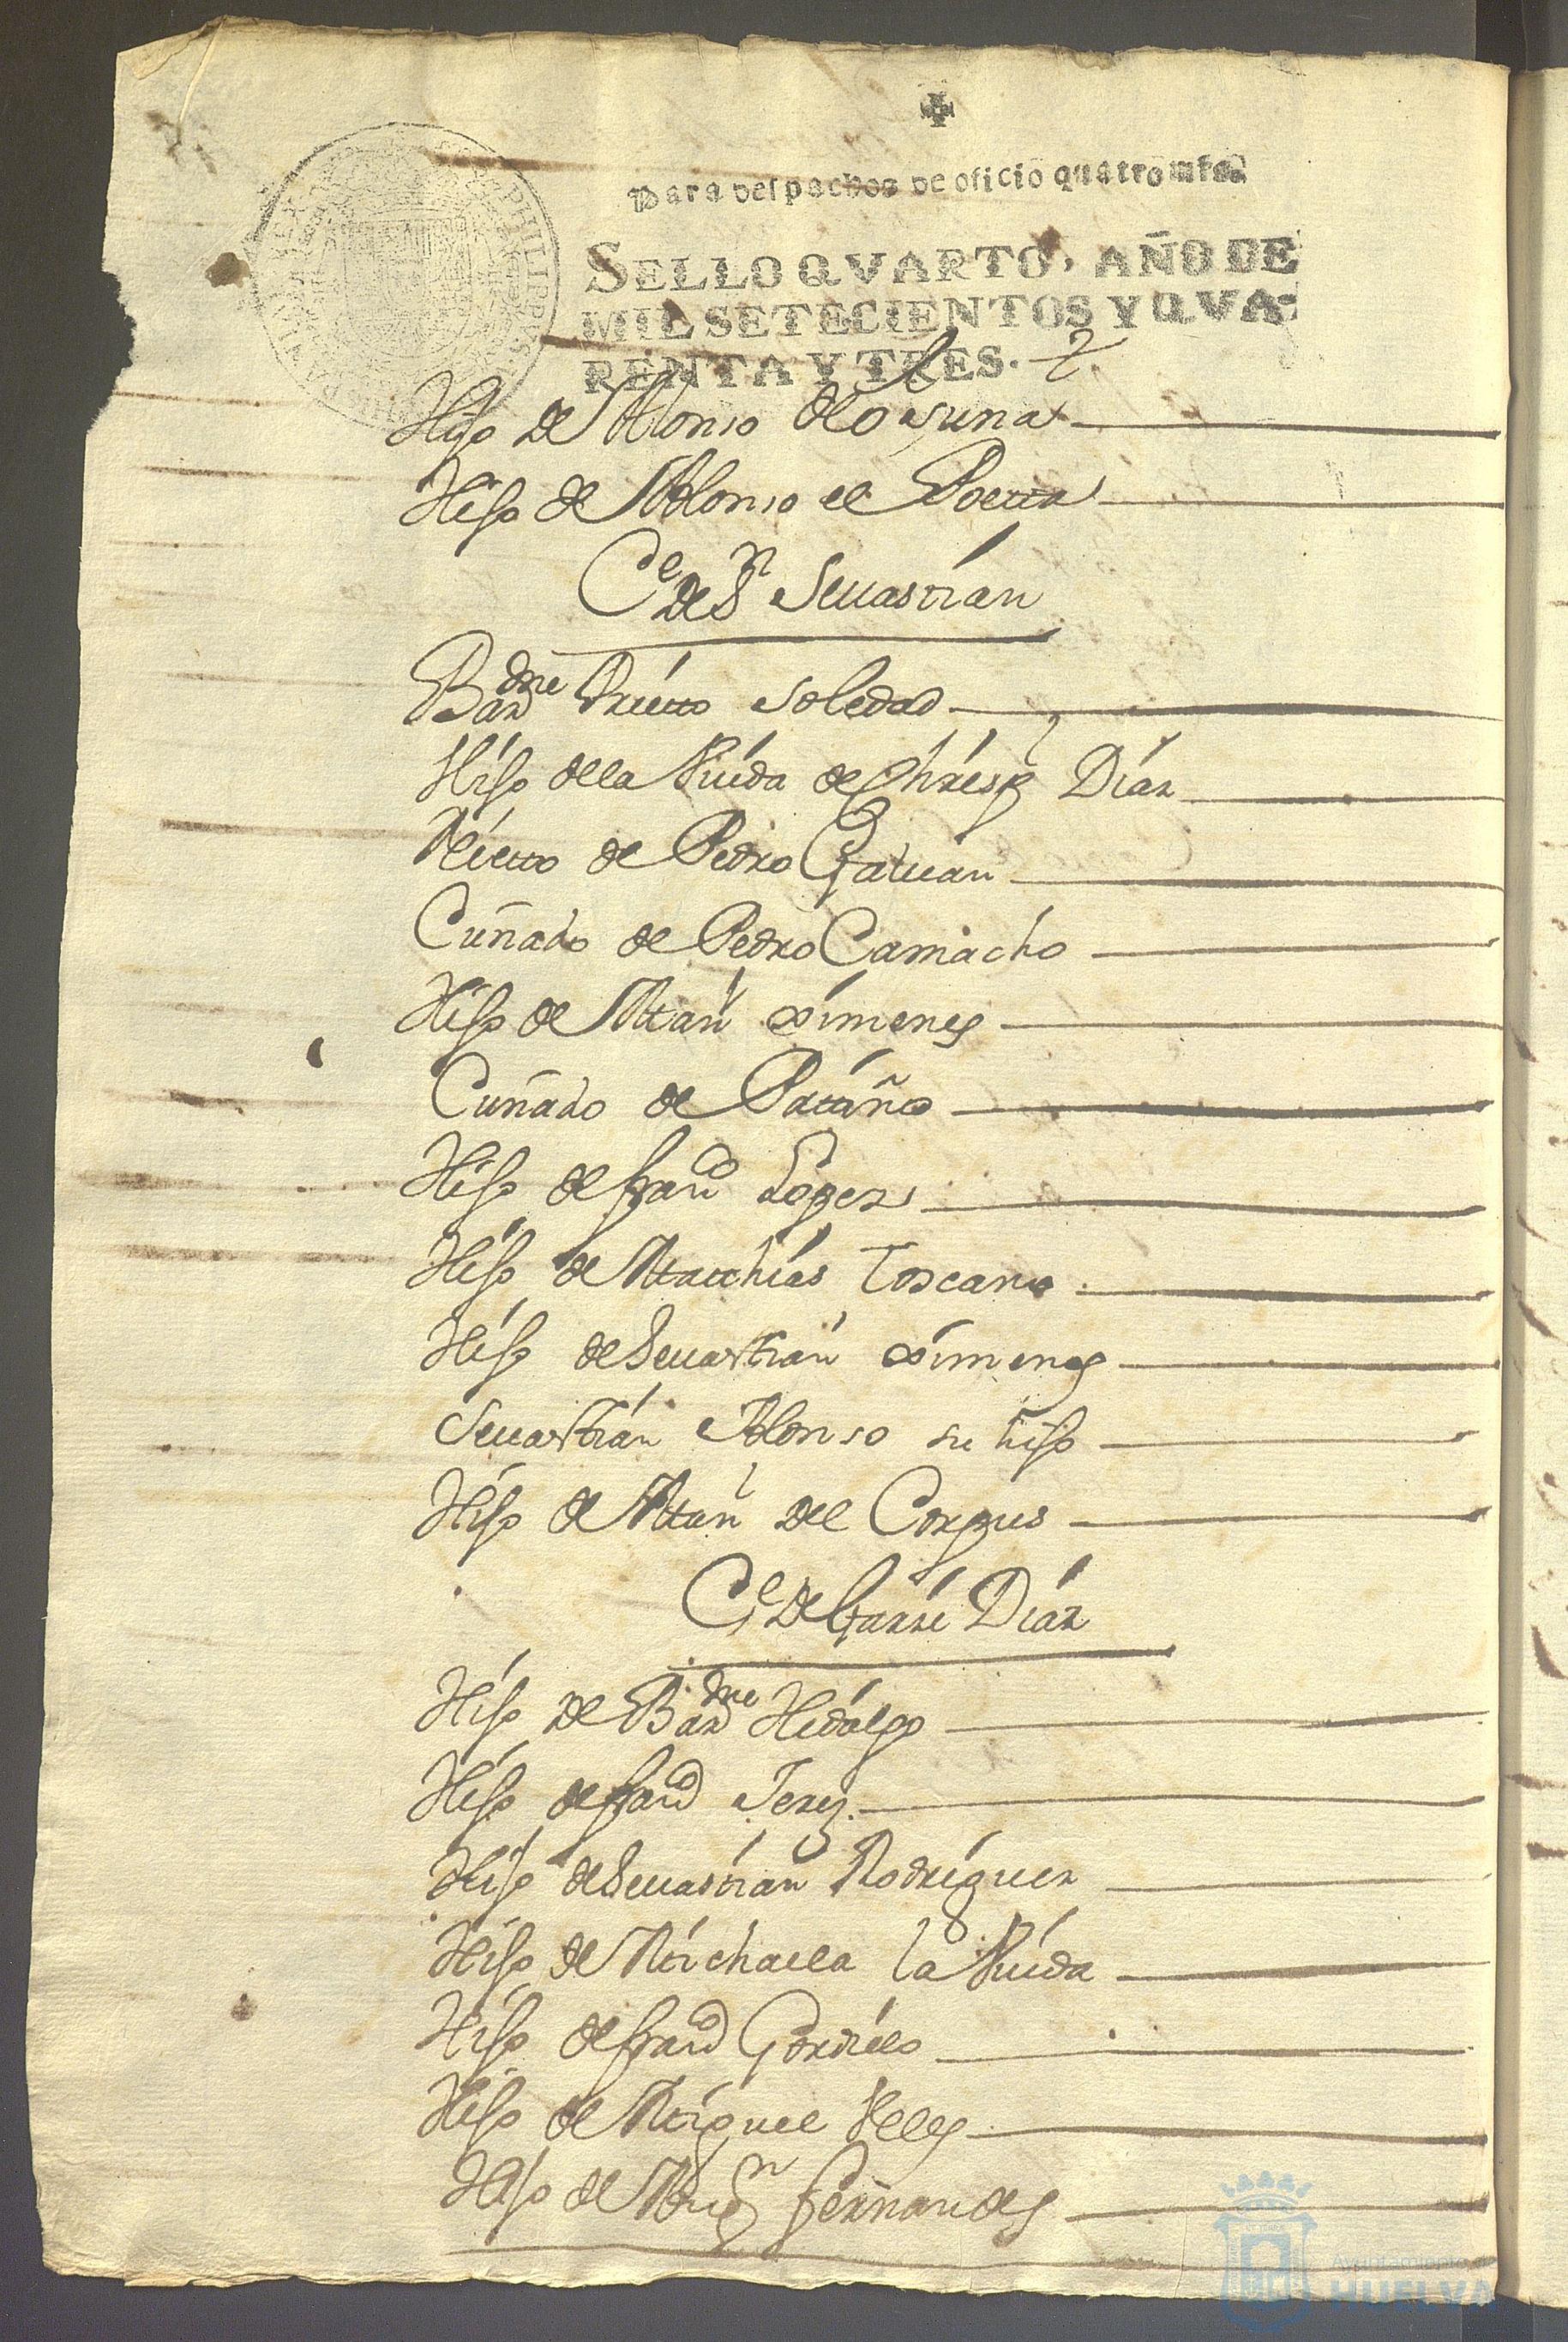 PHILIPPVS
Para despachos de oficio quatro mrs.
SELLO QVARTO, AÑO DE
MIL SETECIENTOS Y QVA-
RENTA Y TRES.
Hijo de Alonso de Osuna
Hijo de Alonso el Poetta
Ce. de Sn Sevastian
Bardme Prietto Soledad
Hijo de la Viuda de Chrisp Diaz
Nietto de Pedro Galuan
Cuñado de Pedro Camacho
Hijo de Man Ximenes
Cuñado de Patiño
Hijo de Franco Lopez
Hijo de Matthias Toscano
Hijo de Sevastian Ximenes
Sevastian Alonso su hijo
Hijo de Man del Corpus
Ce de Garsi Diaz
Hijo de Bardme Hidalgo
Hijo de Franco Jerez
Hijo de Sevastian Rodriguez
Hijo de Michaela la Viuda
Hijo de Franco Gordillo
Hijo de Miguel Velez
Hijo de Fernandes
Ayuntamiento de
HUELVA